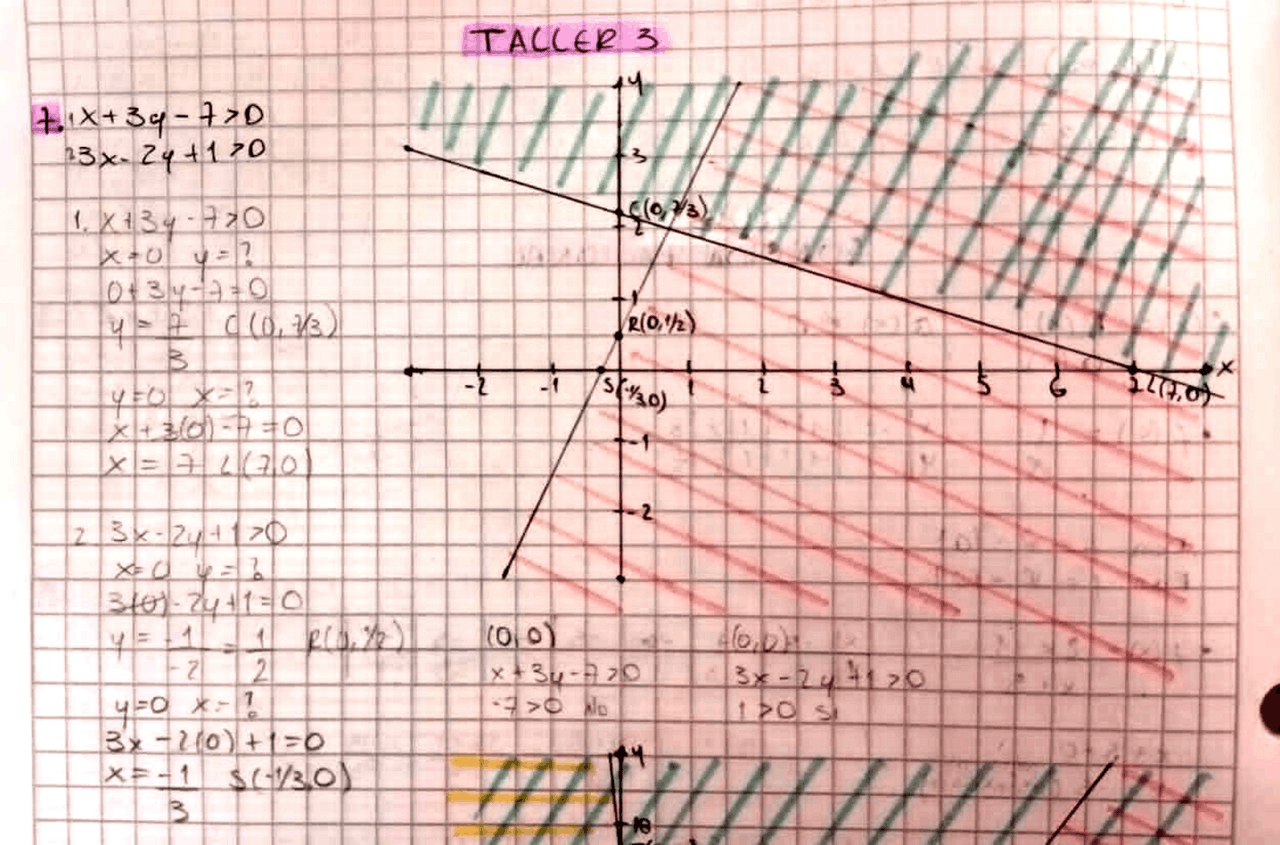 TALLER 3
7. 1 x + 3y - 7 > 0
2 3x - 2y + 1 > 0
1. x + 3y - 7 > 0
x = 0 y = ?
0 + 3y - 7 = 0
y = 7/3 C(0, 7/3)
y = 0 x = ?
x + 3(0) - 7 = 0
x = 7 L(7,0)
2 3x - 2y + 1 > 0
x = 0 y = ?
3(0) - 2y + 1 = 0
y = -1/-2 = 1/2 R(0, 1/2)
y = 0 x = ?
3x - 2(0) + 1 = 0
x = -1/3 S(-1/3,0)
y
3
C(0, 7/3)
2
1
R(0, 1/2)
-2 -1 1 2 3 4 5 6 7 L(7,0) x
S(-1/3,0)
-1
-2
(0,0)
x + 3y - 7 > 0
-7 > 0 No
(0,0)
3x - 2y + 1 > 0
1 > 0 Si
y